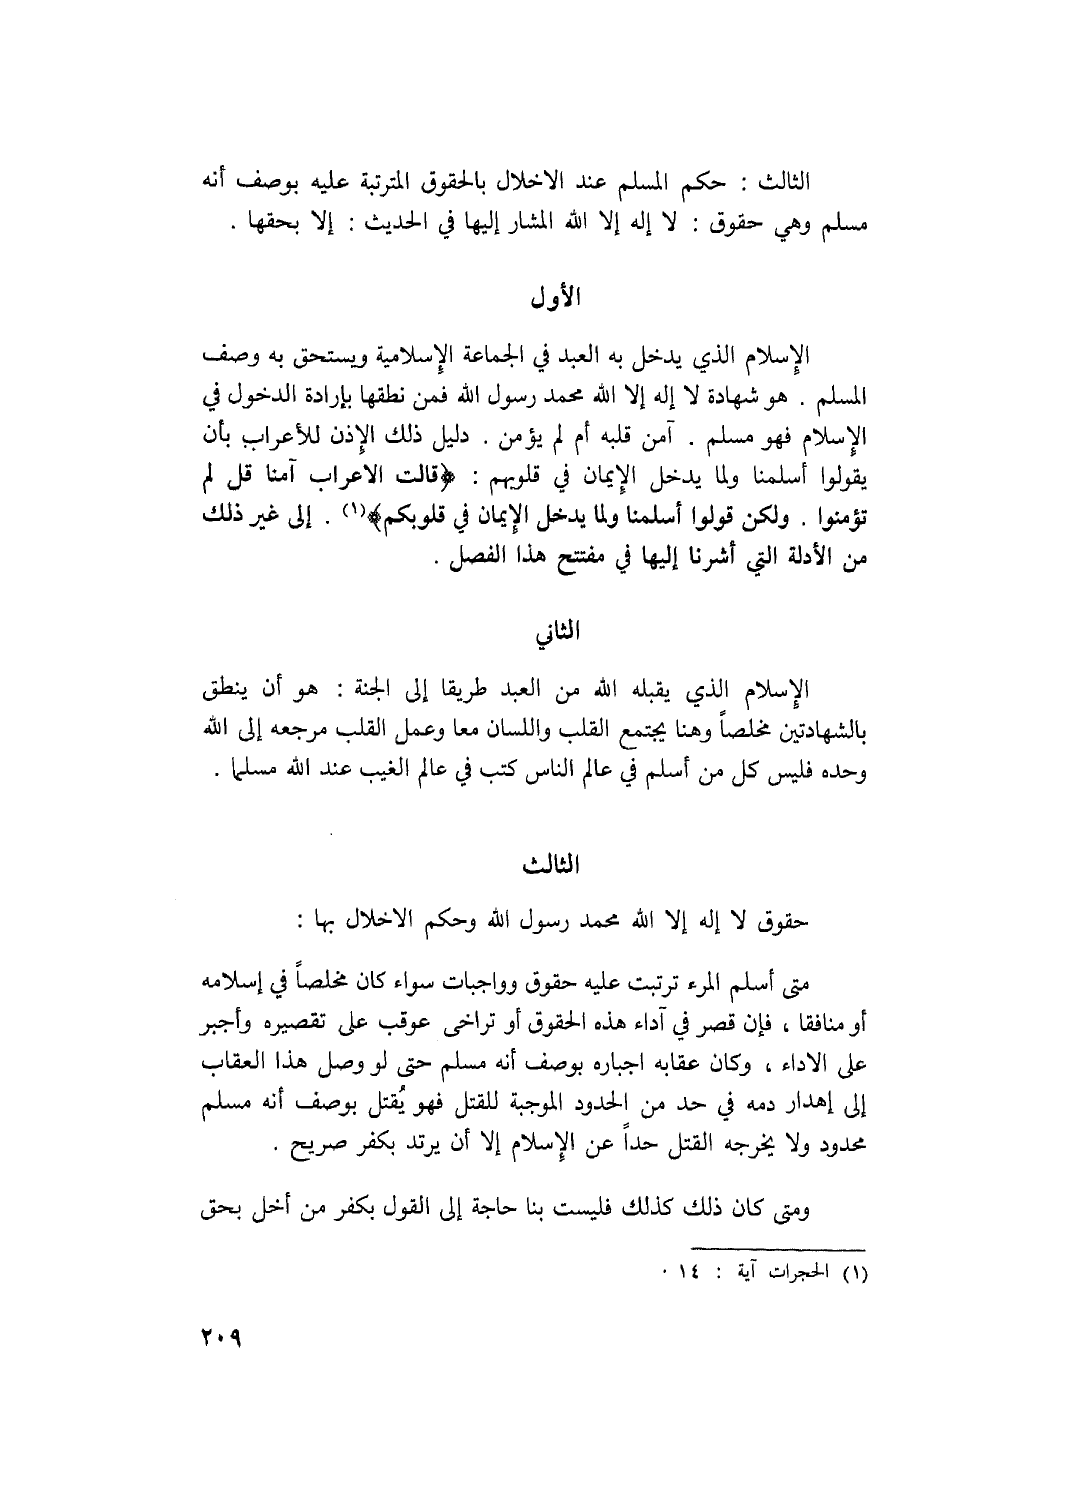 الثالث : حكم المسلم عند الاخلال بالحقوق المترتبة عليه بوصف أنه
مسلم وهي حقوق : لا إله إلا الله المشار إليها في الحديث : إلا بحقها .
الأول
الإسلام الذي يدخل به العبد في الجماعة الإسلامية ويستحق به وصف
المسلم . هو شهادة لا إله إلا الله محمد رسول الله فمن نطقها بإرادة الدخول في
الإسلام فهو مسلم . آمن قلبه أم لم يؤمن . دليل ذلك الإذن للأعراب بأن
يقولوا أسلمنا ولما يدخل الإيمان في قلوبهم : ﴿قالت الاعراب آمنا قل لم
تؤمنوا . ولكن قولوا أسلمنا ولما يدخل الإيمان في قلوبكم﴾(١) . إلى غير ذلك
من الأدلة التي أشرنا إليها في مفتتح هذا الفصل .
الثاني
الإسلام الذي يقبله الله من العبد طريقا إلى الجنة : هو أن ينطق
بالشهادتين مخلصاً وهنا يجتمع القلب واللسان معا وعمل القلب مرجعه إلى الله
وحده فليس كل من أسلم في عالم الناس كتب في عالم الغيب عند الله مسلما .
الثالث
حقوق لا إله إلا الله محمد رسول الله وحكم الاخلال بها :
متى أسلم المرء ترتبت عليه حقوق وواجبات سواء كان مخلصاً في إسلامه
أو منافقا ، فإن قصر في آداء هذه الحقوق أو تراخى عوقب على تقصيره وأجبر
على الاداء ، وكان عقابه اجباره بوصف أنه مسلم حتى لو وصل هذا العقاب
إلى إهدار دمه في حد من الحدود الموجبة للقتل فهو يُقتل بوصف أنه مسلم
محدود ولا يخرجه القتل حداً عن الإسلام إلا أن يرتد بكفر صريح .
ومتى كان ذلك كذلك فليست بنا حاجة إلى القول بكفر من أخل بحق
(١) الحجرات آية : ١٤ .
٢٠٩